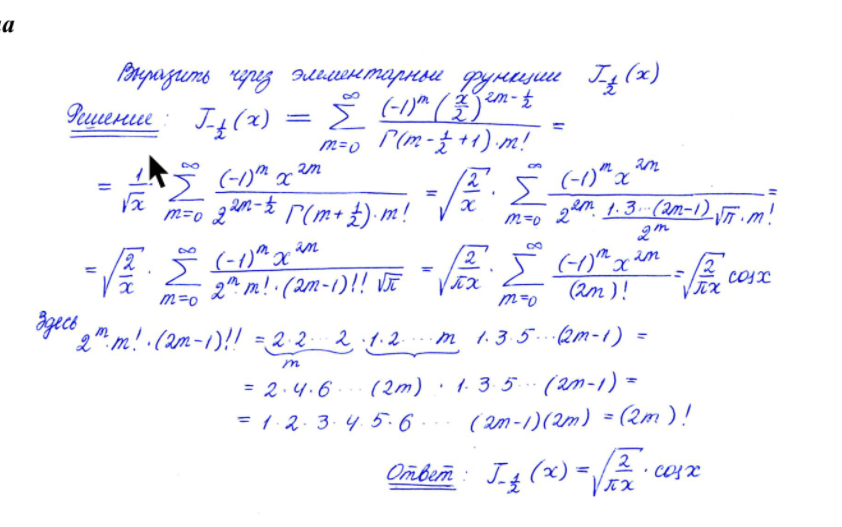 ла
Выразить через элементарные функции J_{-1/2}(x)
Решение: J_{-1/2}(x) = ∑_{m=0}^{∞} (-1)^m (x/2)^{2m-1/2} / (Γ(m-1/2+1)·m!) =
= 1/√x ∑_{m=0}^{∞} (-1)^m x^{2m} / (2^{2m-1/2} Γ(m+1/2)·m!) = √(2/x) · ∑_{m=0}^{∞} (-1)^m x^{2m} / (2^{2m} · (1·3···(2m-1)/2^m) √π · m!) =
= √(2/x) · ∑_{m=0}^{∞} (-1)^m x^{2m} / (2^m·m!·(2m-1)!! √π) = √(2/(πx)) · ∑_{m=0}^{∞} (-1)^m x^{2m} / (2m)! = √(2/(πx)) cosx
Здесь 2^m·m!·(2m-1)!! = 2·2···2 · 1·2····m 1·3·5···(2m-1) =
m
= 2·4·6 ···· (2m) · 1·3·5··· (2m-1) =
= 1·2·3·4·5·6 ···· (2m-1)(2m) = (2m)!
Ответ: J_{-1/2}(x) = √(2/(πx)) · cosx